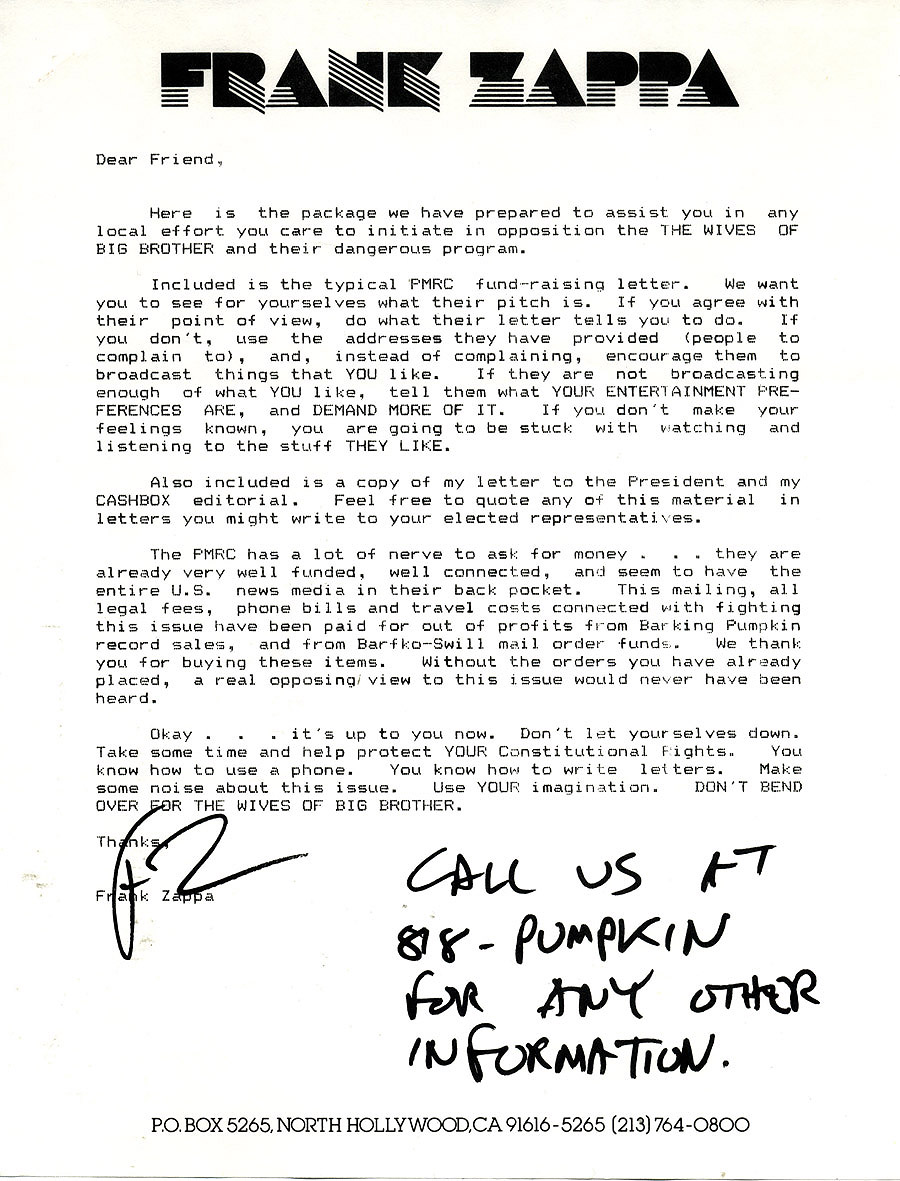 FRANK ZAPPA
Dear Friend,
Here is the package we have prepared to assist you in any
local effort you care to initiate in opposition the THE WIVES OF
BIG BROTHER and their dangerous program.
Included is the typical PMRC fund-raising letter. We want
you to see for yourselves what their pitch is. If you agree with
their point of view, do what their letter tells you to do. If
you don't, use the addresses they have provided (people to
complain to), and, instead of complaining, encourage them to
broadcast things that YOU like. If they are not broadcasting
enough of what YOU like, tell them what YOUR ENTERTAINMENT PRE-
FERENCES ARE, and DEMAND MORE OF IT. If you don't make your
feelings known, you are going to be stuck with watching and
listening to the stuff THEY LIKE.
Also included is a copy of my letter to the President and my
CASHBOX editorial. Feel free to quote any of this material in
letters you might write to your elected representatives.
The PMRC has a lot of nerve to ask for money . . . they are
already very well funded, well connected, and seem to have the
entire U.S. news media in their back pocket. This mailing, all
legal fees, phone bills and travel costs connected with fighting
this issue have been paid for out of profits from Barking Pumpkin
record sales, and from Barfko-Swill mail order funds. We thank
you for buying these items. Without the orders you have already
placed, a real opposing view to this issue would never have been
heard.
Okay . . . it's up to you now. Don't let yourselves down.
Take some time and help protect YOUR Constitutional Rights. You
know how to use a phone. You know how to write letters. Make
some noise about this issue. Use YOUR imagination. DON'T BEND
OVER FOR THE WIVES OF BIG BROTHER.
Thanks,
FZ
Frank Zappa
CALL US AT
818-PUMPKIN
FOR ANY OTHER
INFORMATION.
P.O. BOX 5265, NORTH HOLLYWOOD, CA 91616-5265 (213) 764-0800